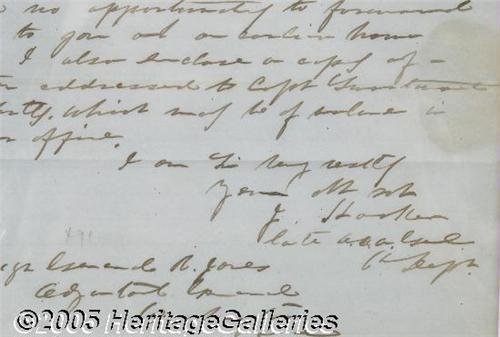 no opportunity to forward
to you at an earlier hour
I also enclose a copy of
addressed to Capt
which may be of value in
office.
I am Sir Very respty
Your obt svt
J. Hooker
late a.a.a. Genl
6th Dept
891
General R. Jones
Adjutant General
©2005 HeritageGalleries